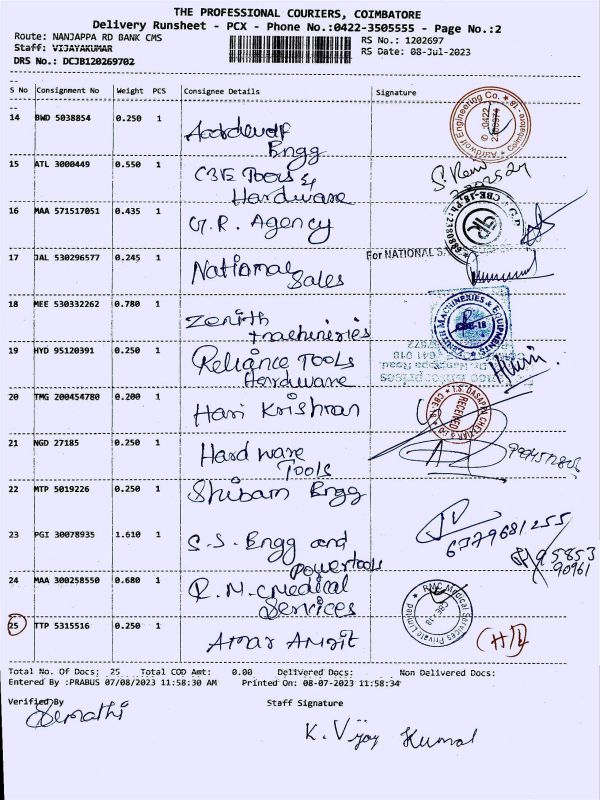 THE PROFESSIONAL COURIERS, COIMBATORE
Delivery Runsheet - PCX - Phone No.:0422-3505555 - Page No.:2
Route: NANJAPPA RD BANK CMS
RS No.: 1202697
Staff: VIJAYAKUMAR
RS Date: 08-Jul-2023
DRS No.: DCJB120269702
S No Consignment No Weight PCS Consignee Details Signature
14 BWD 5038854 0.250 1
Aardwolf
Engg
Aardwolf Engineering Co.
Coimbatore - 18
15 ATL 3000449 0.550 1
CBE Tools &
Hardware
16 MAA 571517051 0.435 1
G.R. Agency
CBE-18
17 JAL 530296577 0.245 1
For NATIONAL
National
Sales
18 MEE 530332262 0.780 1
Zenith
machineries
ZENITH MACHINERIES & EQUIPMENTS
CBE-18
19 HYD 95120391 0.250 1
Reliance Tools
Hardware
641 018
20 TMG 200454780 0.200 1
Hari Krishnan
T.S. DASAPPA CHETTIAR & CO
RECEIVED
CBE-18
21 NGD 27185 0.250 1
Hardware
Tools
22 MTP 5019226 0.250 1
Shibam Engg
23 PGI 30078935 1.610 1
S.S. Engg and
powertools
6379681255
95853
90961
24 MAA 300258550 0.680 1
R.M.C Medical
Services
RMC Medical Services Private Limited
CBE-18
25 TTP 5315516 0.250 1
Amar Amrit
Total No. Of Docs: 25 Total COD Amt: 0.00 Delivered Docs: Non Delivered Docs:
Entered By :PRABUS 07/08/2023 11:58:30 AM Printed On: 08-07-2023 11:58:34
Verified By
Staff Signature
K. Vijay Kumar